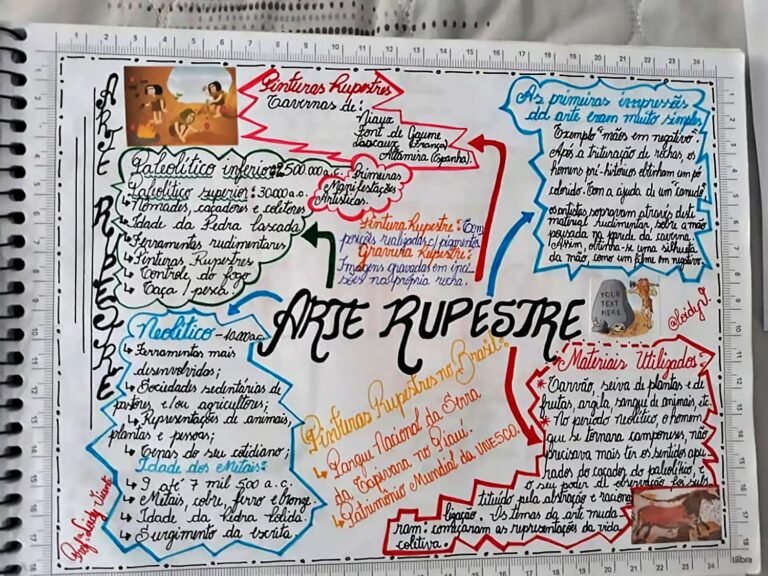 ARTE RUPESTRE
Pinturas Rupestres
Cavernas de:
Niaux
Font de Gaume
Lascaux (França)
Altamira (Espanha).
As primeiras impressões
da arte eram muito simples
Exemplo "mãos em negativo".
Após a trituração de rochas, os
homens pré-históricos obtinham um pó
colorido. Com a ajuda de um "canudo"
os artistas sopravam através deste
material rudimentar, sobre a mão
pousada na parede da caverna.
Assim, obtinha-se uma silhueta
da mão, como um filme em negativo.
Paleolítico inferior: 500.000 a.c.
Paleolítico superior: 30000 a.c.
↳ Nômades, caçadores e coletores
↳ Idade da Pedra Lascada
↳ Ferramentas rudimentares
↳ Pinturas Rupestres
↳ Controle do fogo
↳ Caça / pesca
Primeiras
Manifestações
Artísticas.
Pintura Rupestre: Com
posições realizadas c/ pigmentos
Gravura Rupestre:
Imagens gravadas em inci
sões na própria rocha.
ARTE RUPESTRE
YOUR
TEXT
HERE
@leidy V.
Neolítico - 10.000 a.c
↳ Ferramentas mais
desenvolvidas;
↳ Sociedades sedentárias de
pastores e/ou agricultores;
↳ Representações de animais,
plantas e pessoas;
↳ Cenas do seu cotidiano;
Idade dos Metais:
↳ 9 até 7 mil 500 a.c.
↳ Metais, cobre, ferro e bronze.
↳ Idade da Pedra Polida.
↳ Surgimento da escrita.
Pinturas Rupestres no Brasil:
↳ Parque Nacional da Serra
da Capivara no Piauí.
↳ Patrimônio Mundial da UNESCO.
Materiais Utilizados:
* Carvão, seiva de plantas e de
frutas, argila, sangue de animais, etc.
* No período neolítico, o homem,
que se tornara camponês, não
precisava mais ter os sentidos apu
rados do caçador do paleolítico, e
o seu poder de observação foi subs
tituído pela abstração e raciona
lização. Os temas da arte muda
ram: começaram as representações da vida
coletiva.
Profª Leidy
tilibra